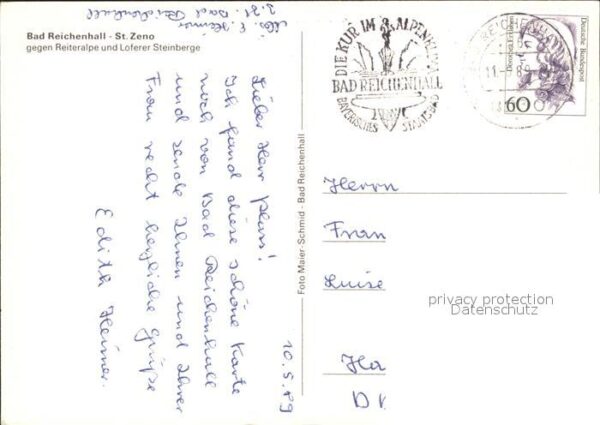 Bad Reichenhall - St. Zeno
gegen Reiteralpe und Loferer Steinberge
Bad Reichenhall
10.5.89
Lieber Herr Plass!
Ich fand diese schöne Karte
noch von Bad Reichenhall
und sende Ihnen und Ihrer
Frau recht herzliche Grüße
Edith Heimer.
Foto Maier-Schmid - Bad Reichenhall
DIE KUR IM ALPENKLIMA
BAD REICHENHALL
BAYERISCHES STAATSBAD
REICHENHALL
Deutsche Bundespost
60
Herrn
Frau
Luise
privacy protection
Datenschutz